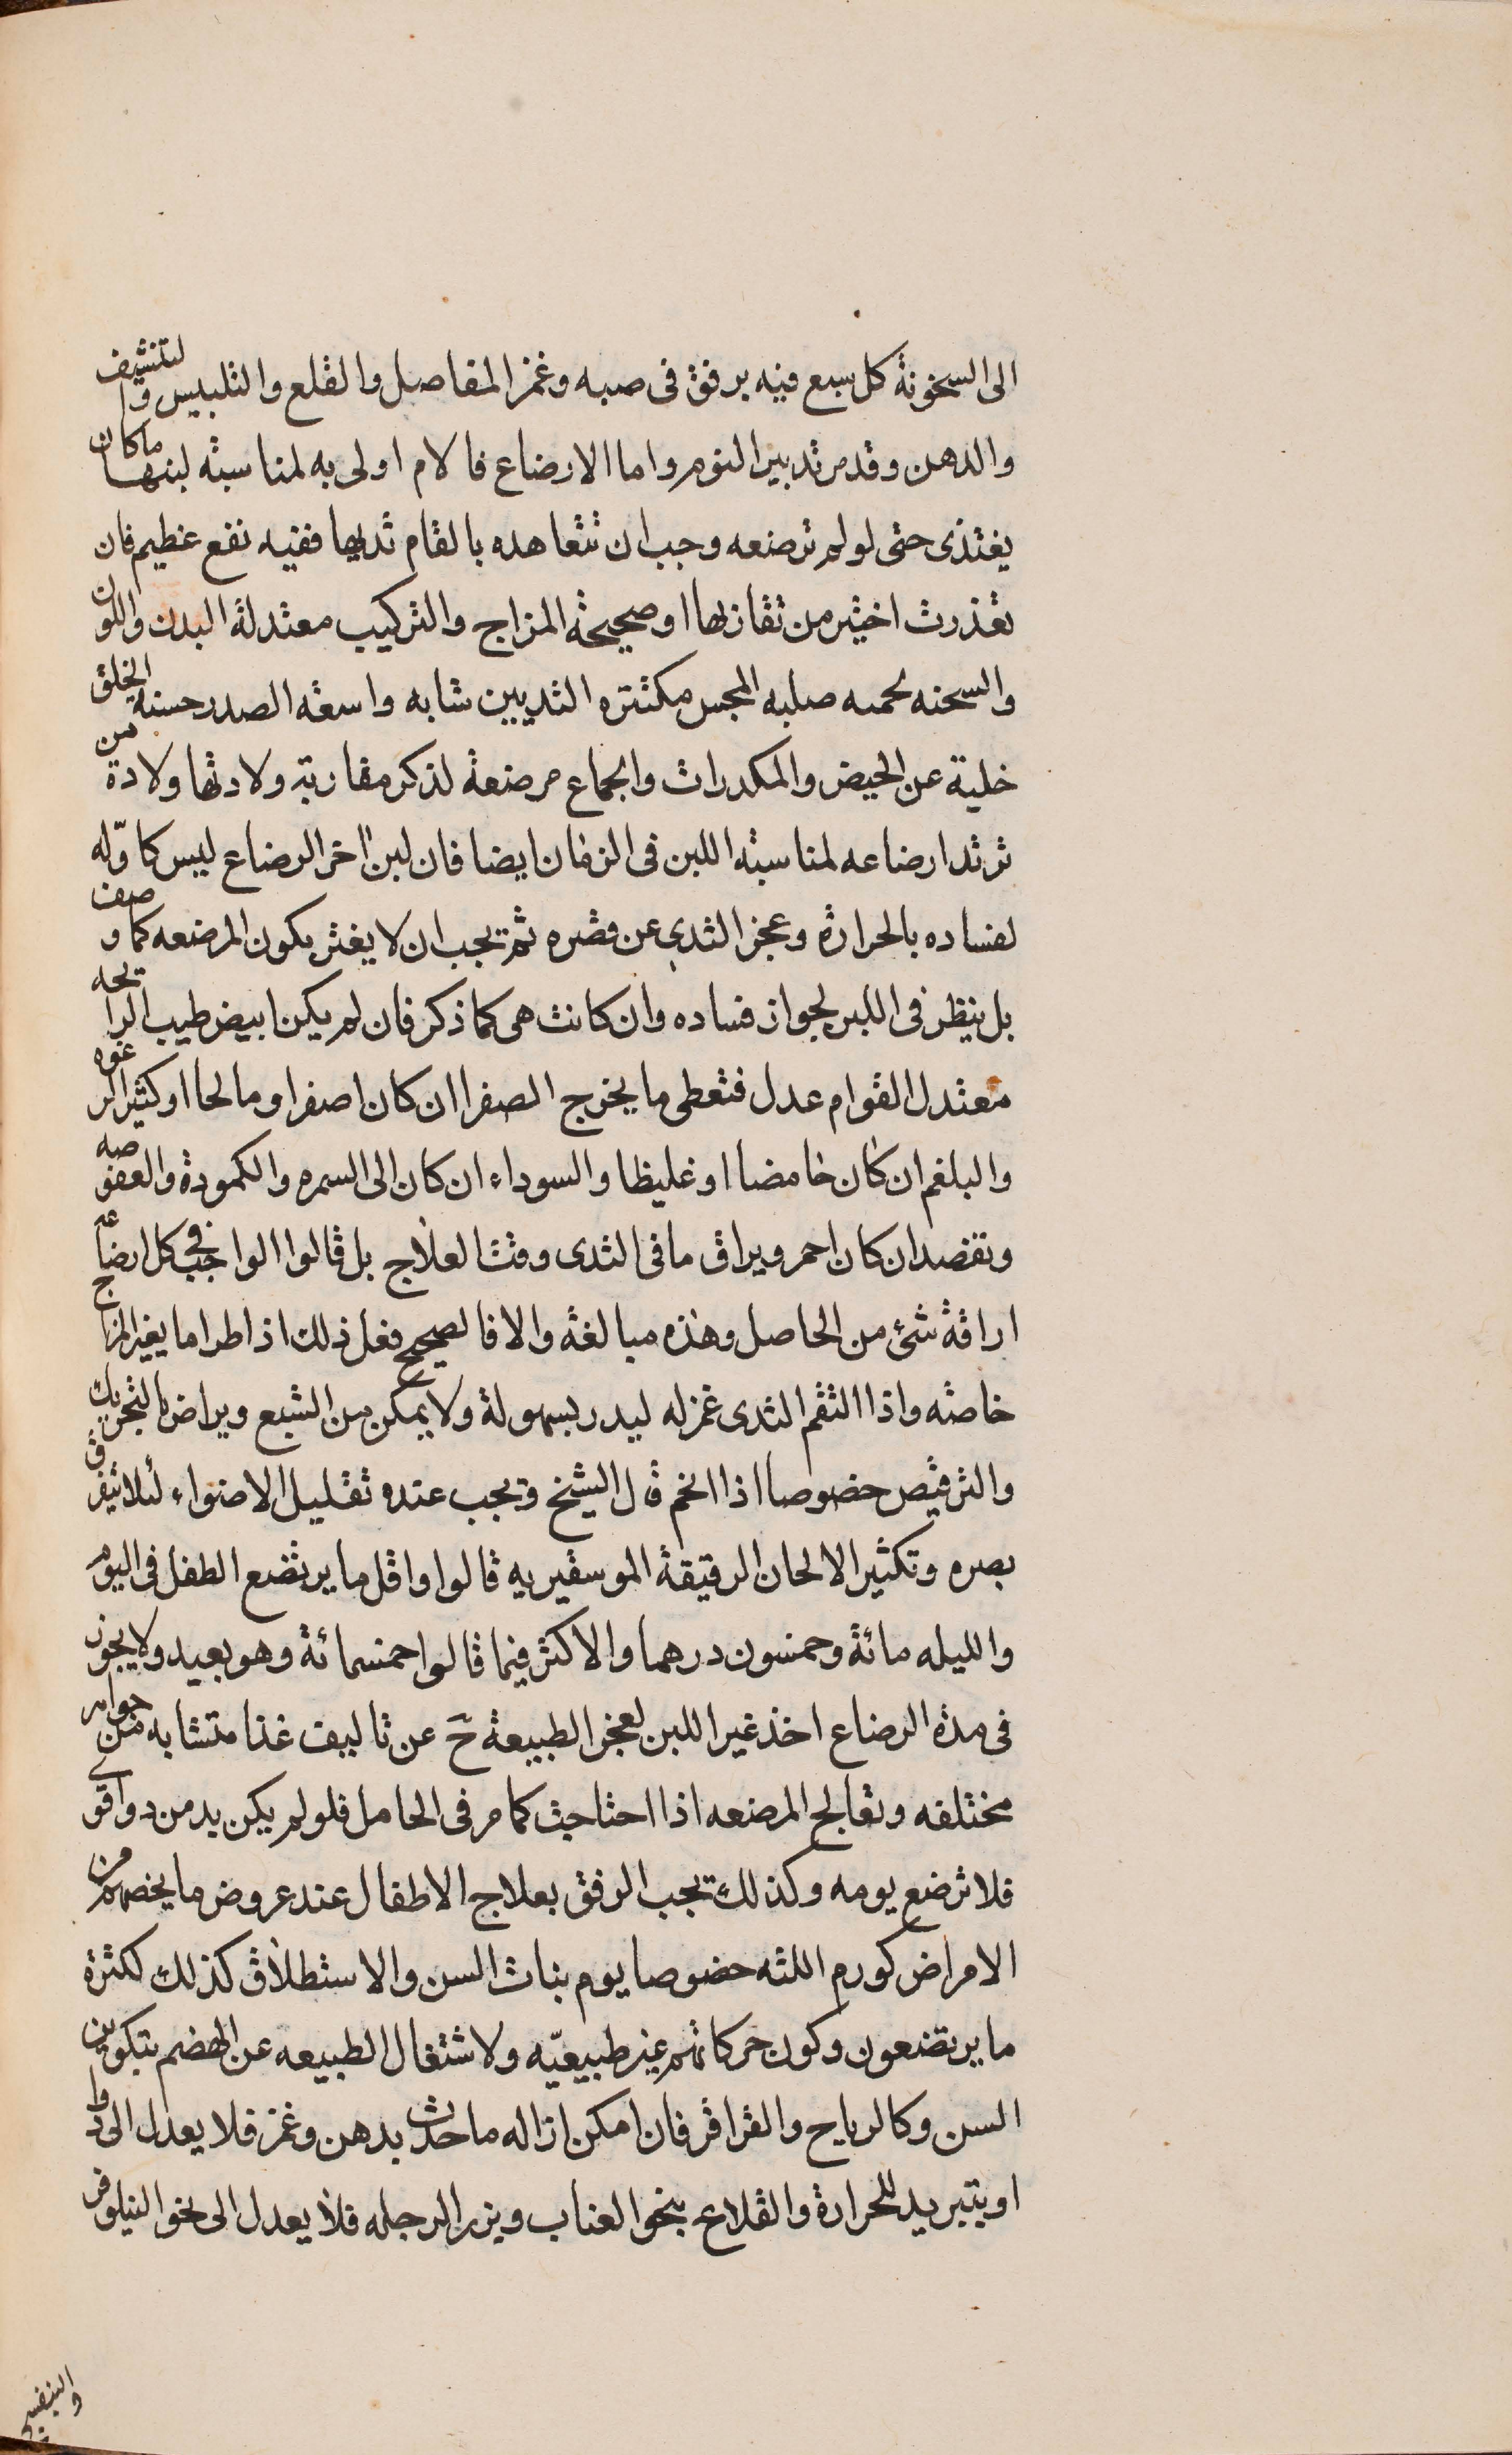 الى السخونة كل سبع فيه برفق فى صبه وغمز المفاصل والقلع والتلبيس والتنشيف
والدهن وقد مر تدبير النوم واما الارضاع فالام اولى به لمناسبته لبنها ما كان
يغتذى حتى لو لم ترضعه وجب ان تتعاهده بالقام ثديها ففيه نفع عظيم فان
تعذرت اختير من تقاربها او صحيحة المزاج والتركيب معتدلة البدن واللون
والسحنه لحمه صلبه المجس مكتنزه الثديين شابه واسعة الصدر حسنة الخلق
خلية عن الحيض والمكدرات والجماع مرضعة لذكر مقاربة ولادتها ولادة من
ترتد ارضاعه لمناسبته اللبن فى الزمان ايضا فان لبن اخر الرضاع ليس كاوّله
لفساده بالحرارة وعجز الثدى عن قصره ثم يجب ان لا يغتر بكون المرضعه كما وصف
بل ينظر فى اللبن لجواز فساده وان كانت هى كما ذكر فان لم يكن ابيض طيب الرائحه
معتدل القوام عدل فتعطى ما يخرج الصفرا ان كان اصفر او مالحا او كثير الرغوه
والبلغم ان كان حامضا او غليظا والسوداء ان كان الى السمره والكمودة والعفوصه
وتفصد ان كان احمر ويراق ما فى الثدى وقت العلاج بل قالوا الواجب فى كل ارضاعه
اراقة شئ من الحاصل وهذه مبالغة والا فالصحيح فعل ذلك اذا طرا ما يغير المزاج
خاصته واذا التقم الثدى غمز له ليدر بسهولة ولا يمكن من الشبع ويراض بالتحريك
والترقيص خصوصا اذا اتخم قال الشيخ ويجب عنده تقليل الاضواء لئلا يتفرق
بصره وتكثير الالحان الرقيقة الموسقيريه قالوا واقل ما يرتضع الطفل فى اليوم
والليله مائة وخمسون درهما والاكثر فيما قالوا خمسمائة وهو بعيد ولا يجوز
فى مدة الرضاع اخذ غير اللبن لعجز الطبيعة ح عن تاليف غذا متشابه من جواهر
مختلفه وتعالج المرضعه اذا احتاجت كما مر فى الحامل فلو لم يكن بد من دوا قوى
فلا ترضع يومه وكذلك يجب الرفق بعلاج الاطفال عند عروض ما يخصهم من
الامراض كورم اللثه خصوصا يوم بنات السن والاستطلاق كذلك لكثرة
ما يرتضعون وكون حركاتهم غير طبيعيّه ولاشتغال الطبيعه عن الهضم بتكوين
السن وكالرياح والقراقر فان امكن ازاله ما حدث بدهن وغمز فلا يعدل الى دوا
او بتبريد للحرارة والقلاع بنحو العناب وبزر الرجله فلا يعدل الى نحو النيلوفر
والبنفسج